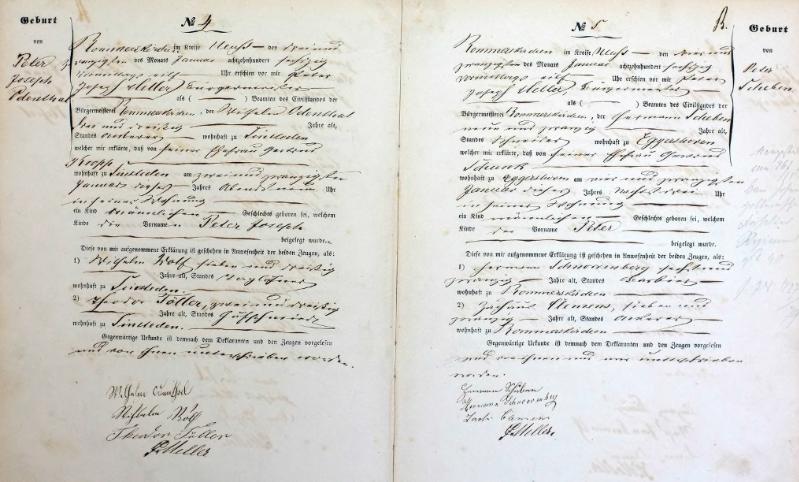 Geburt
von
Peter
Joseph
Odenthal
№ 4
Rommerskirchen im Kreise Neuß den drei und
zwanzigsten des Monats Januar achtzehnhundert sechszig
Vormittags elf Uhr erschien vor mir Peter
Joseph Meller Bürgermeister
als Beamten des Civilstandes der
Bürgermeisterei Rommerskirchen, der Wilhelm Odenthal
drei und dreißig Jahre alt,
Standes Ackerer wohnhaft zu Sinsteden
welcher mir erklärte, daß von seiner Ehefrau Gertrud
wohnhaft zu Sinsteden am zwei und zwanzigsten
Januar dieses Jahres Abends neun Uhr
in seiner Wohnung
ein Kind männlichen Geschlechts geboren sei, welchem
Kinde die Vornamen Peter Joseph
beigelegt wurden.
Diese von mir aufgenommene Erklärung ist geschehen in Anwesenheit der beiden Zeugen, als:
1) Wilhelm Wolf, sieben und dreißig
Jahre alt, Standes Taglöhner
wohnhaft zu Sinsteden.
2) Theodor Töller, zwei und dreißig
Jahre alt, Standes Hufschmied
wohnhaft zu Sinsteden.
Gegenwärtige Urkunde ist demnach dem Deklaranten und den Zeugen vorgelesen
und von ihnen unterschrieben worden.
Wilhelm Odenthal
Wilhelm Wolf
Theodor Töller
Meller
№ 5
B.
Geburt
von
Peter
Scheben
Rommerskirchen im Kreise Neuß den vier und
zwanzigsten des Monats Januar achtzehnhundert sechszig
Vormittags elf Uhr erschien vor mir Peter
Joseph Meller Bürgermeister
als Beamten des Civilstandes der
Bürgermeisterei Rommerskirchen, der Hermann Scheben
neun und zwanzig Jahre alt,
Standes Schneider wohnhaft zu Eggershoven
welcher mir erklärte, daß von seiner Ehefrau Gertrud
wohnhaft zu Eggershoven am vier und zwanzigsten
Januar dieses Jahres Nachts drei Uhr
in seiner Wohnung
ein Kind männlichen Geschlechts geboren sei, welchem
Kinde der Vorname Peter
beigelegt wurde.
Diese von mir aufgenommene Erklärung ist geschehen in Anwesenheit der beiden Zeugen, als:
1) Hermann Schnorrenberg sechs und
zwanzig Jahre alt, Standes Barbier
wohnhaft zu Rommerskirchen
2) sieben und
zwanzig Jahre alt, Standes Ackerer
wohnhaft zu Rommerskirchen
Gegenwärtige Urkunde ist demnach dem Deklaranten und den Zeugen vorgelesen
und von ihnen und mir unterschrieben
worden.
Hermann Scheben
Hermann Schnorrenberg
Meller